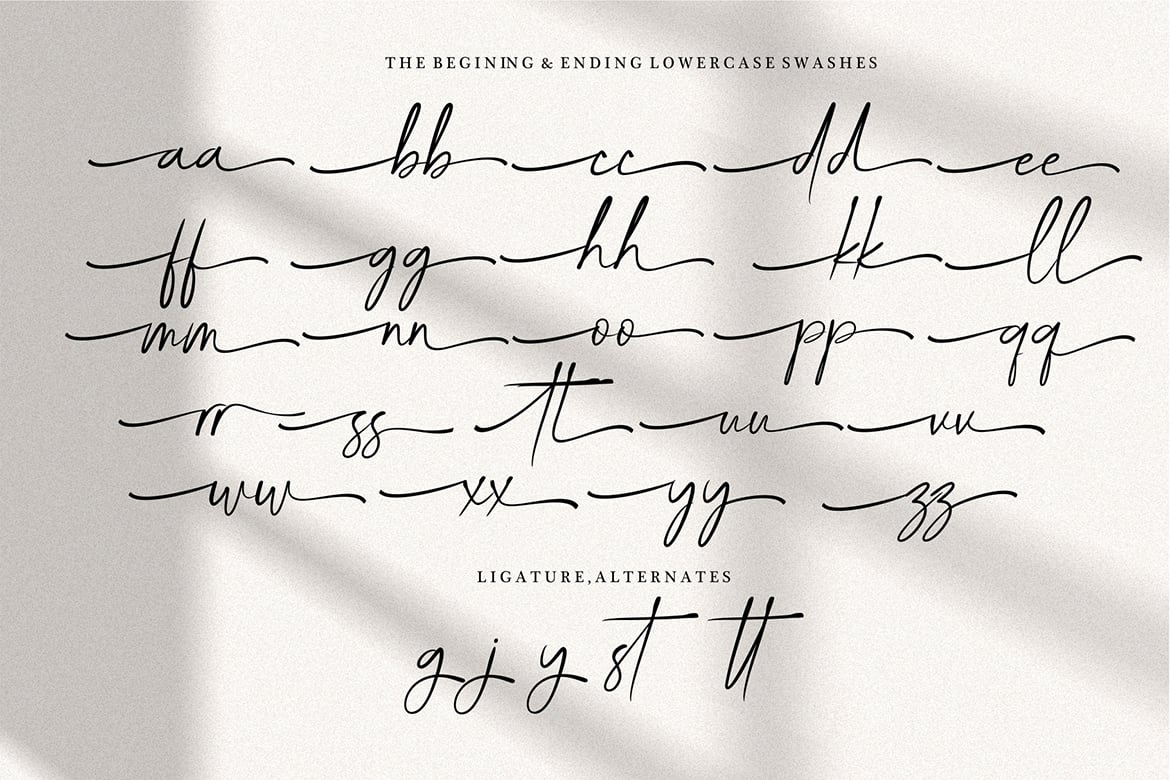 THE BEGINING & ENDING LOWERCASE SWASHES
aa bb cc dd ee
ff gg hh kk ll
mm nn oo pp qq
rr ss tt uu vv
ww xx yy zz
LIGATURE,ALTERNATES
g j y st tt